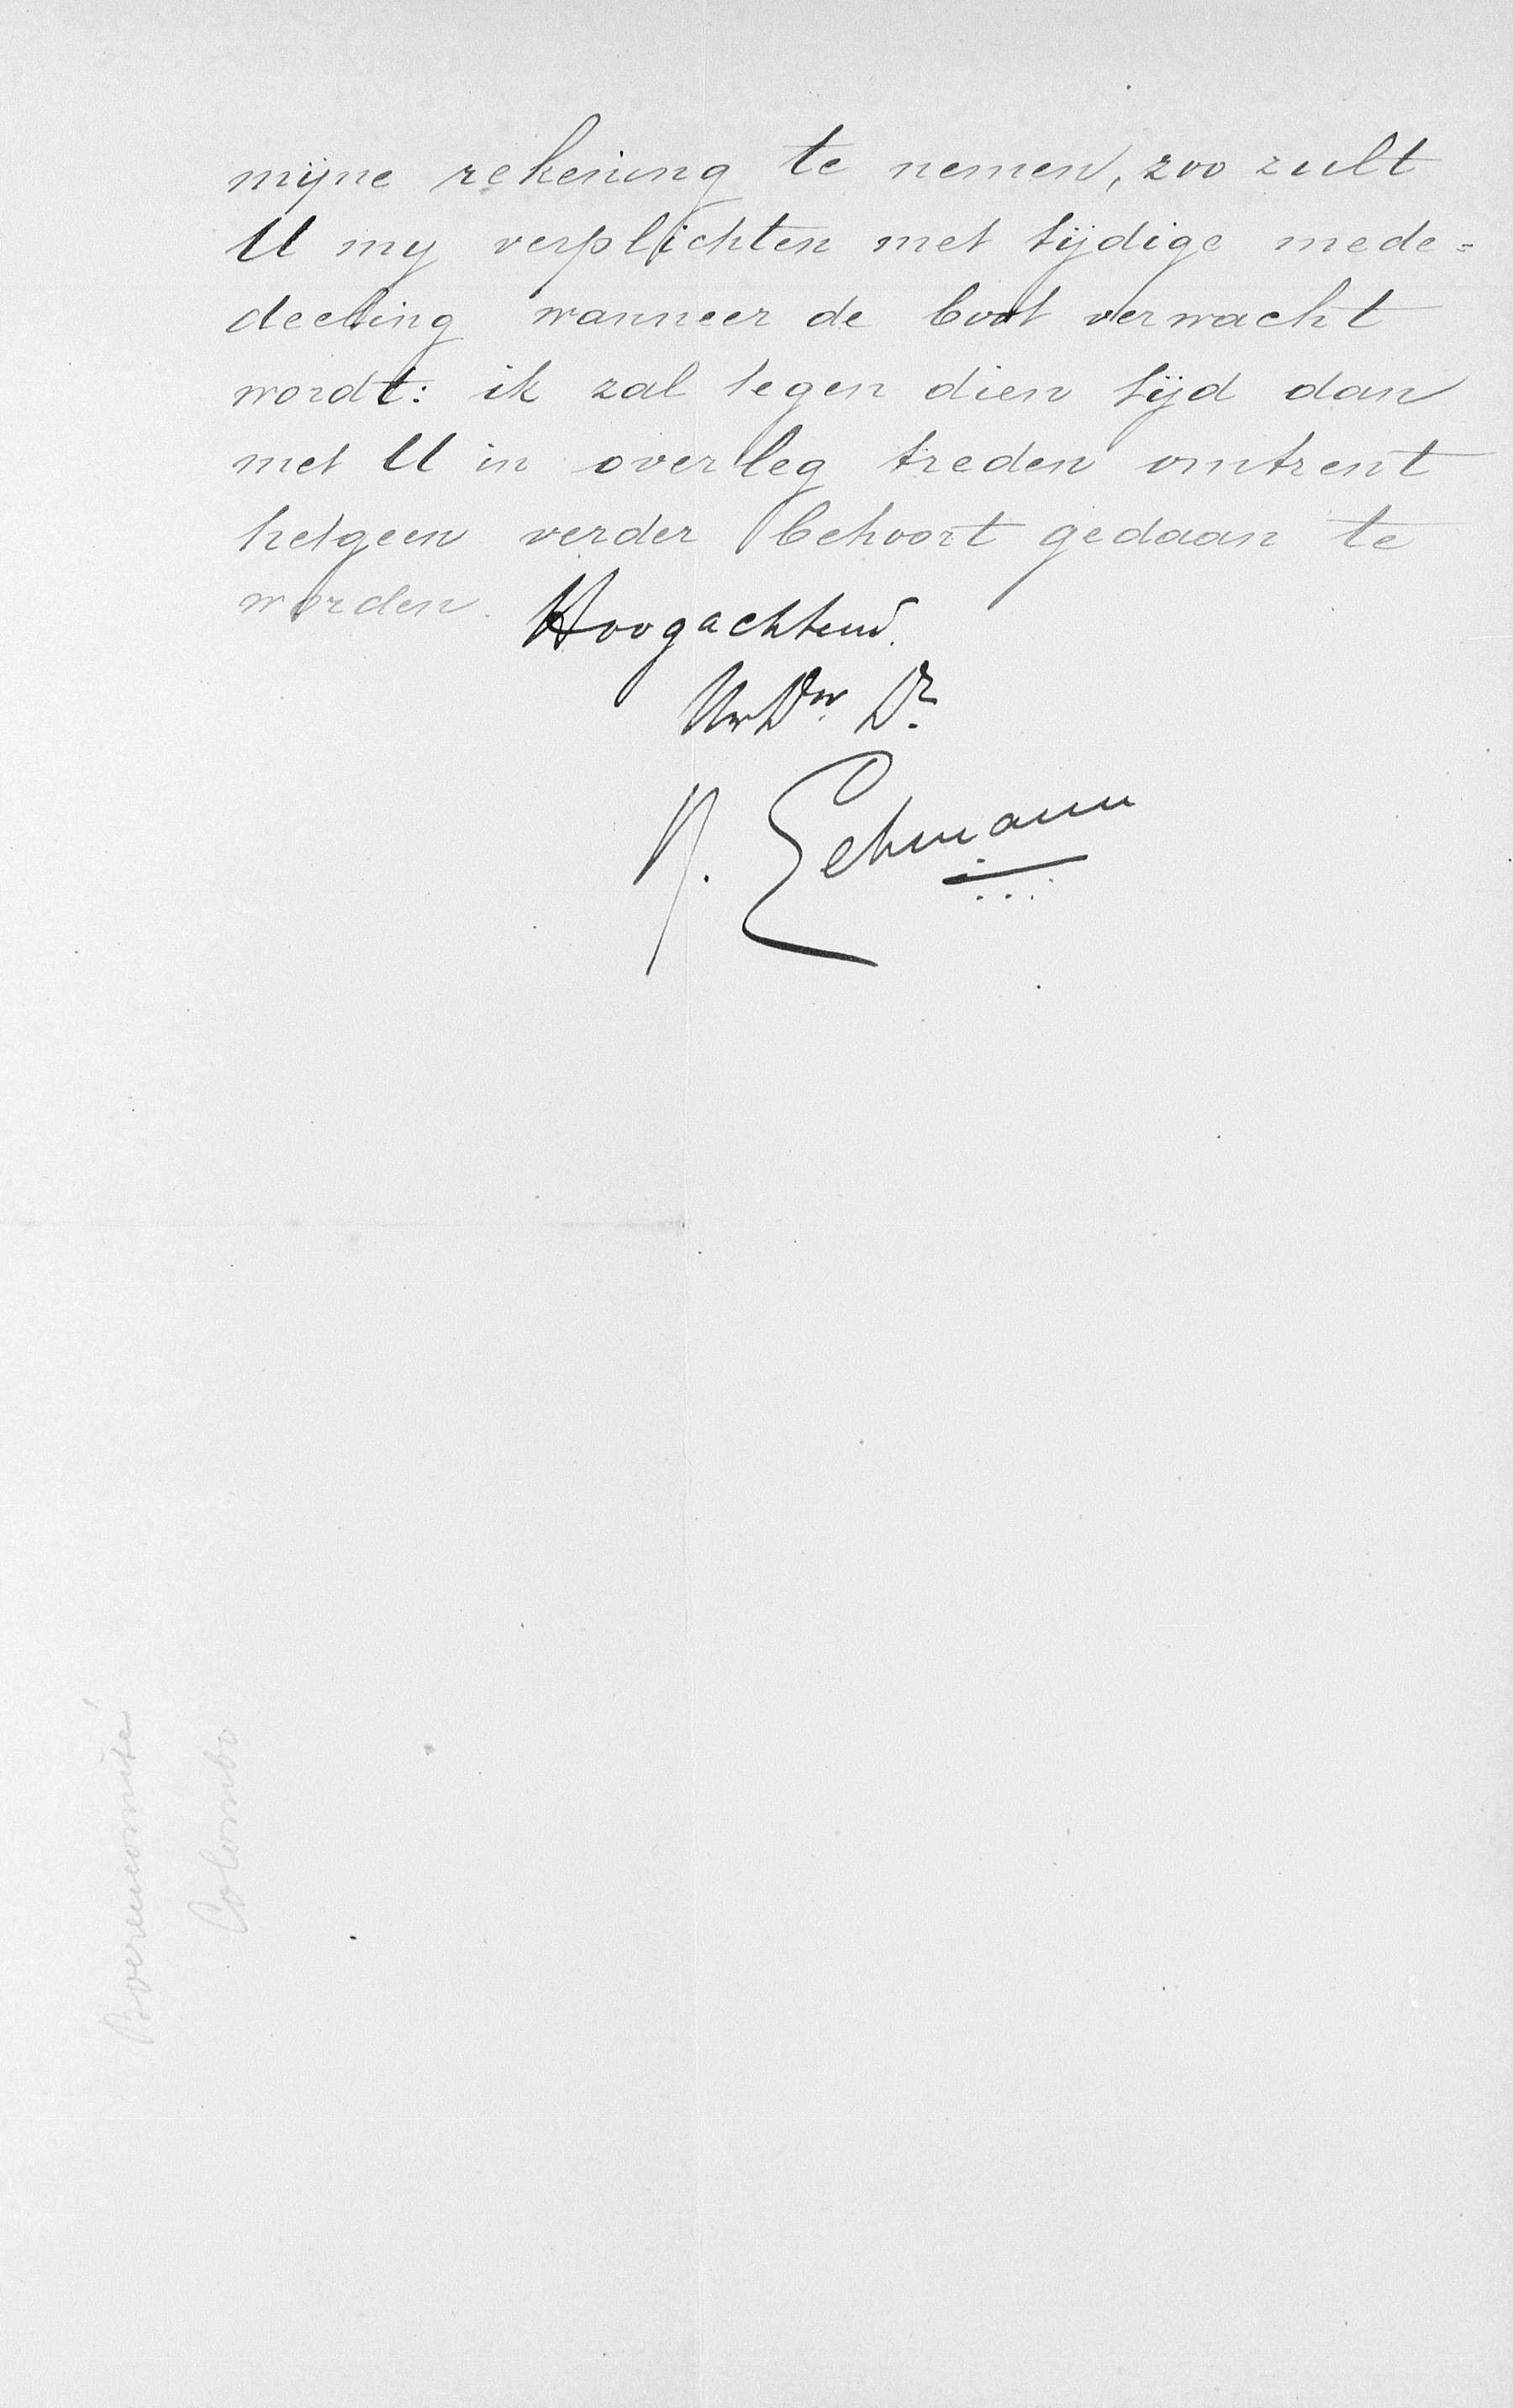 mijne rekening te nemen, zoo zult
U my verplichten met tijdige mede=
deeling wanneer de boot verwacht
wordt: ik zal tegen dien tijd dan
met U in overleg treden omtrent
hetgeen verder behoort gedaan te
worden.
Hoogachtend.
UwDw Dr
Lehmann
Boerencomité
Colombo